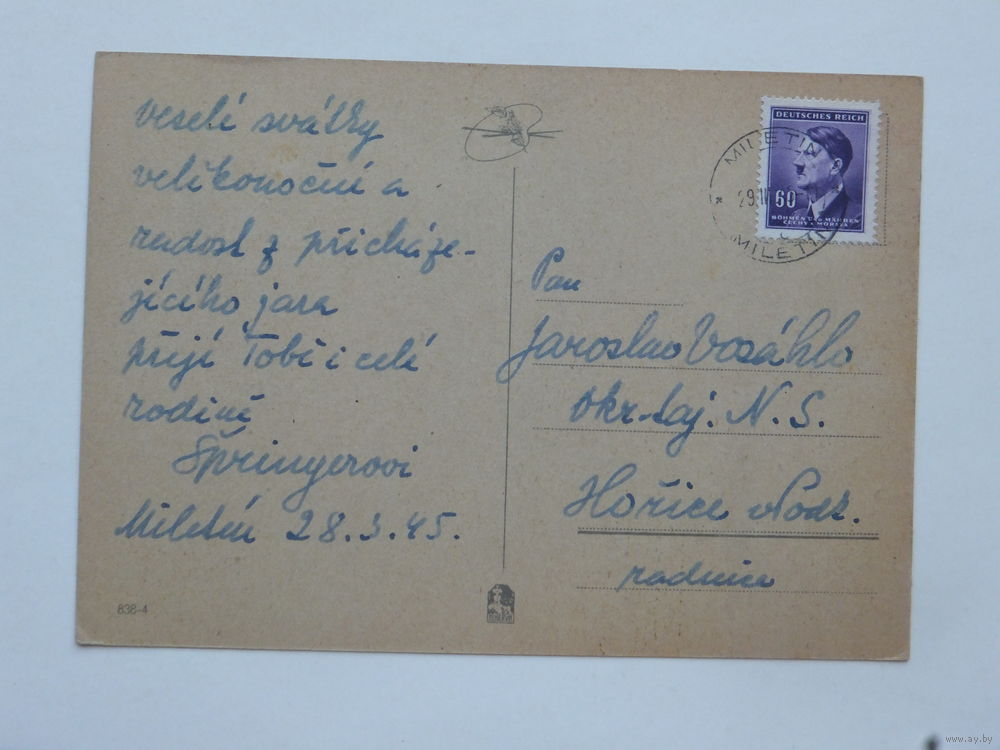 veselé svátky
velikonoční a
radost z přicháze-
jícího jara
přejí Tobě i celé
rodině
Špringerovi
Miletín 28.3.45.
838-4
DEUTSCHES REICH
60
BÖHMEN UND MÄHREN
ČECHY A MORAVA
MILETIN
29.III
MILETÍN
Pan
Jaroslav Vosáhlo
Okr. taj. N. S.
Hořice v Podk.
radnice
www.ay.by